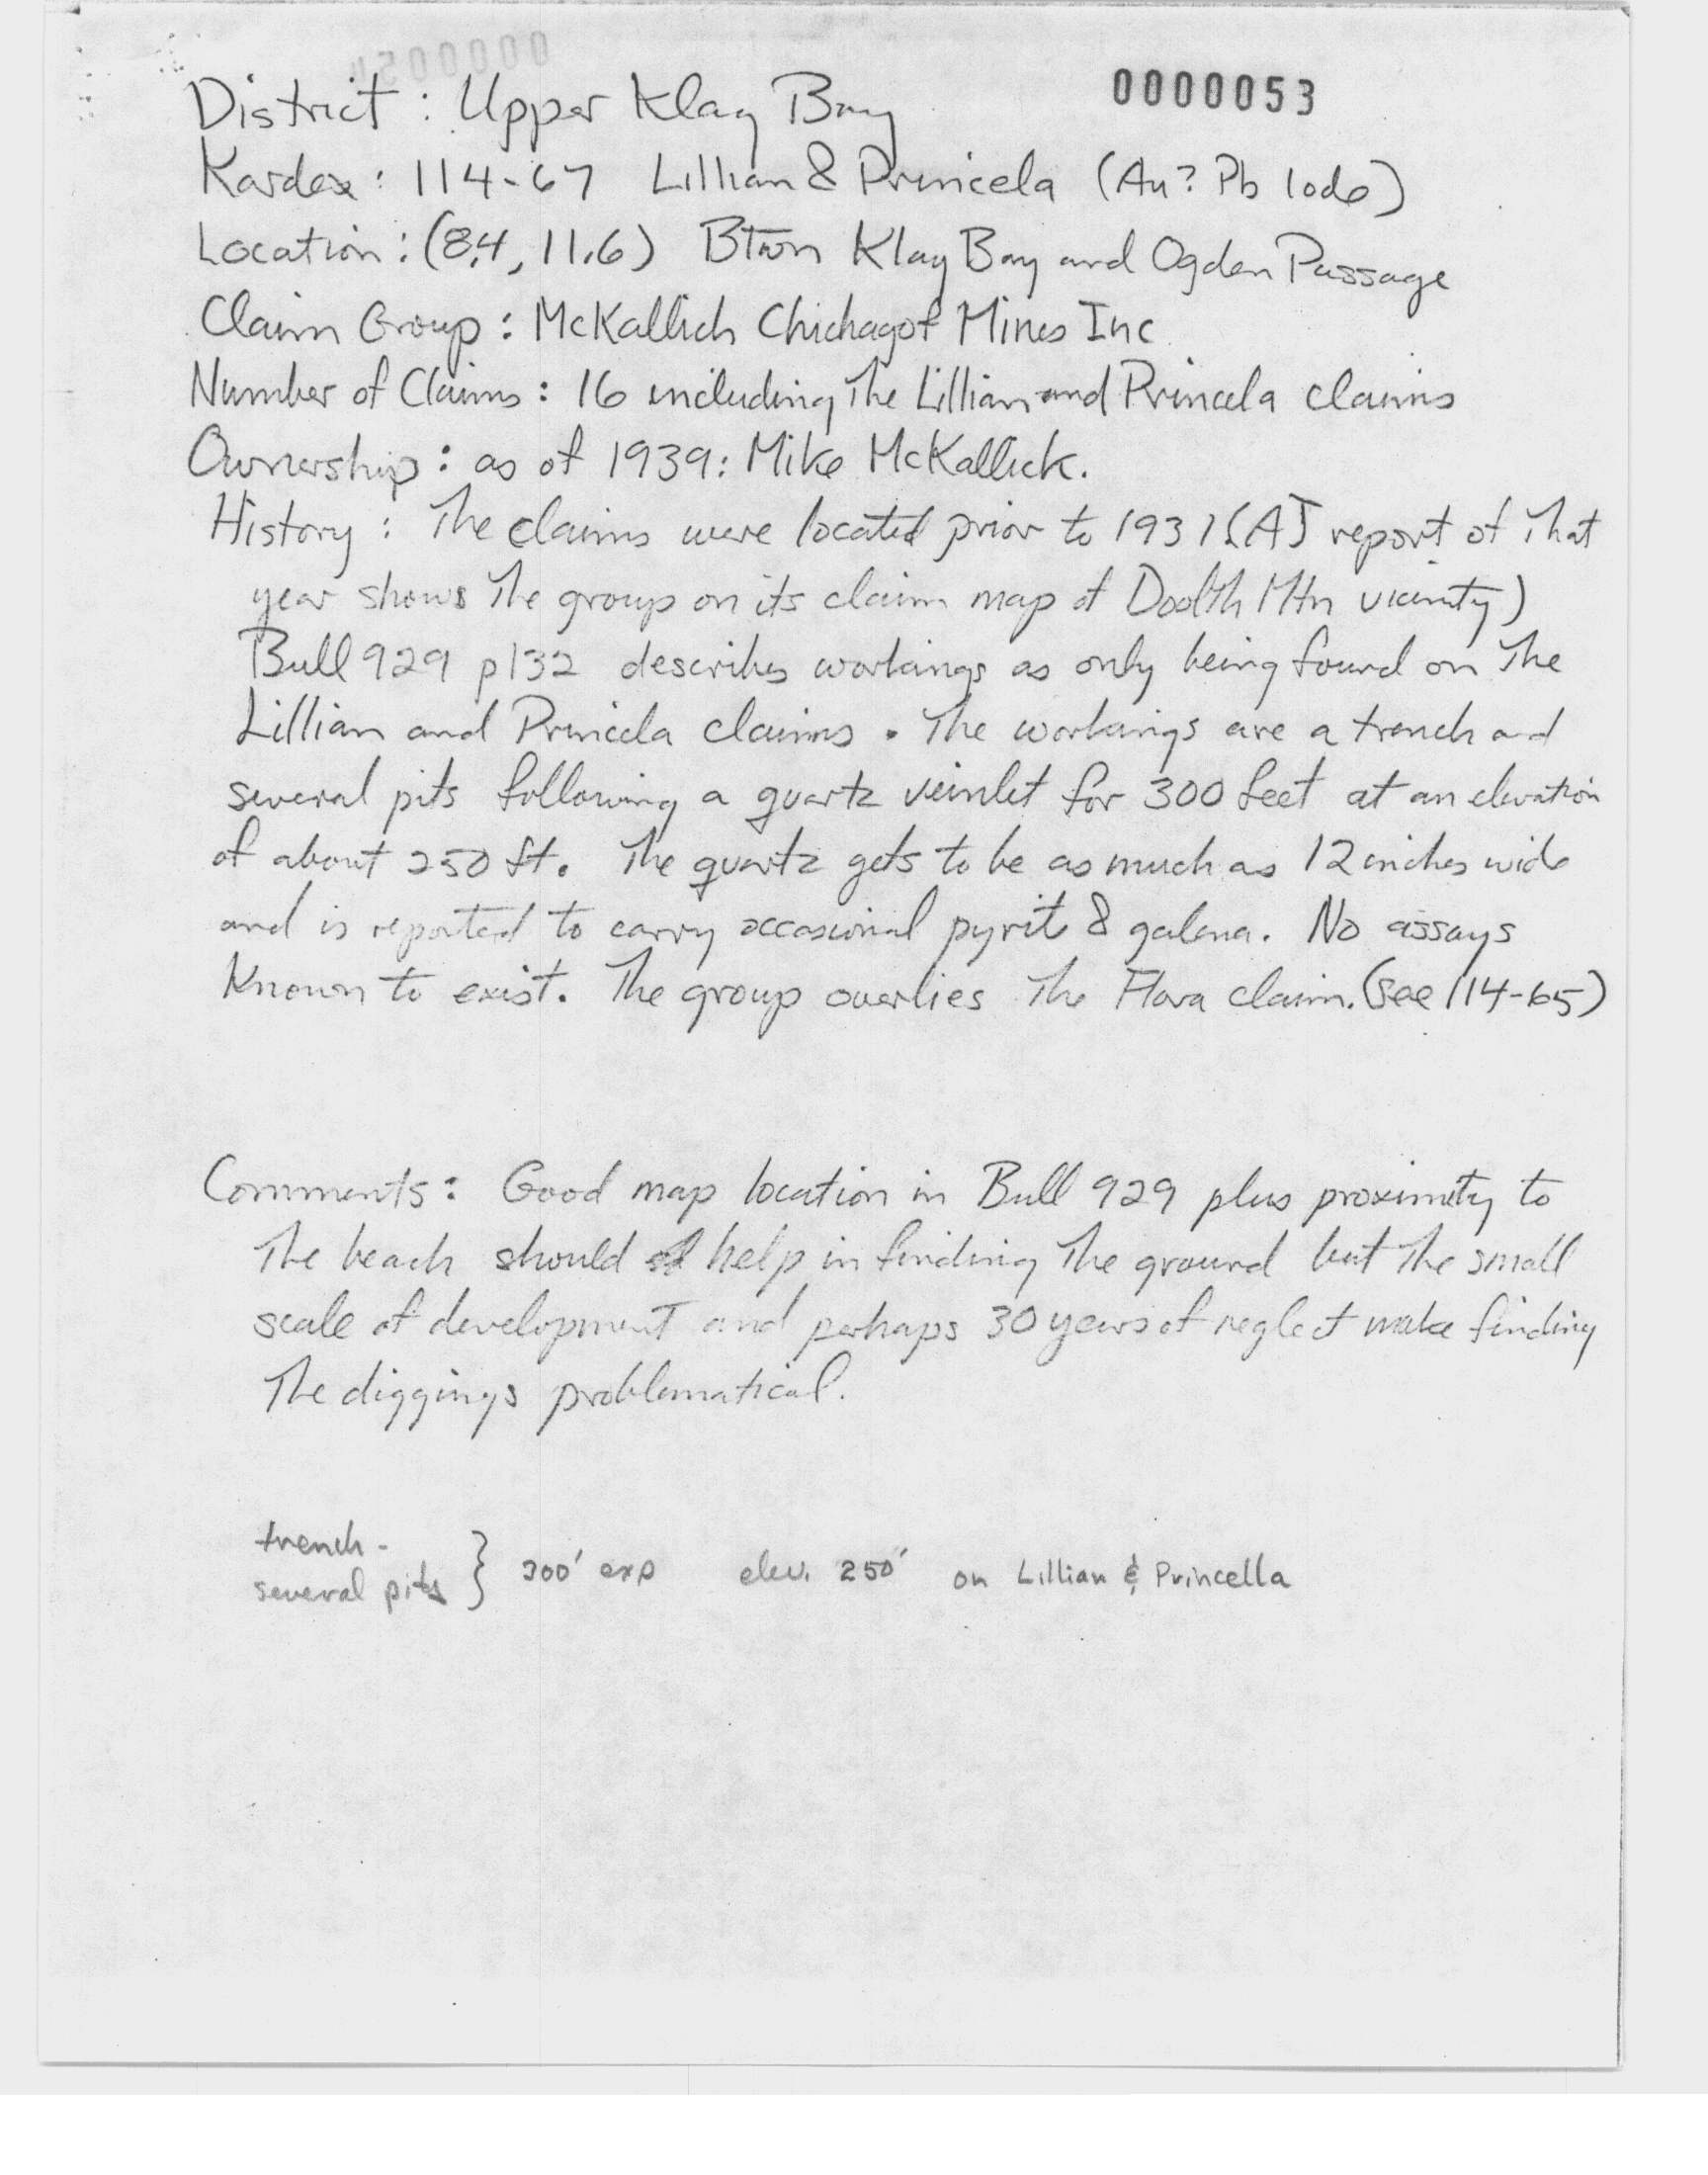 0000053
District : Upper Klag Bay
Kardex : 114-67 Lillian & Princela (Au? Pb lode)
Location : (8.4, 11.6) Btwn Klag Bay and Ogden Passage
Claim Group : McKallich Chichagof Mines Inc
Number of Claims : 16 including The Lillian and Princela claims
Ownership : as of 1939: Mike McKallick.
History : The claims were located prior to 1931 (A J report of That
year shows The group on its claim map of Doolth Mtn vicinity)
Bull 929 p132 describes workings as only being found on The
Lillian and Princela claims. The workings are a trench and
several pits following a quartz veinlet for 300 feet at an elevation
of about 250 ft. The quartz gets to be as much as 12 inches wide
and is reported to carry occasional pyrite & galena. No assays
Known to exist. The group overlies The Flora claim. (see 114-65)
Comments : Good map location in Bull 929 plus proximity to
The beach should help in finding The ground but The small
scale of development and perhaps 30 years of neglect make finding
The diggings problematical.
trench -
several pits } 300' exp elev. 250' on Lillian & Princella